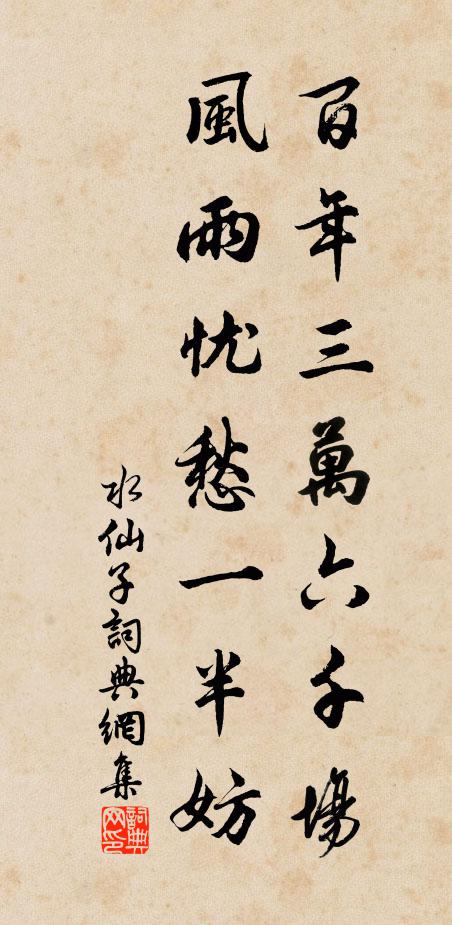 百年三萬六千場
風雨忧愁一半妨
水仙子詞典網集
詞典
网印